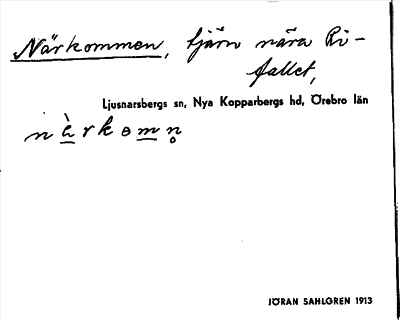 Närkommen, tjärn nära Ri-
fallet,
Ljusnarsbergs sn, Nya Kopparbergs hd, Örebro län
JÖRAN SAHLGREN 1913